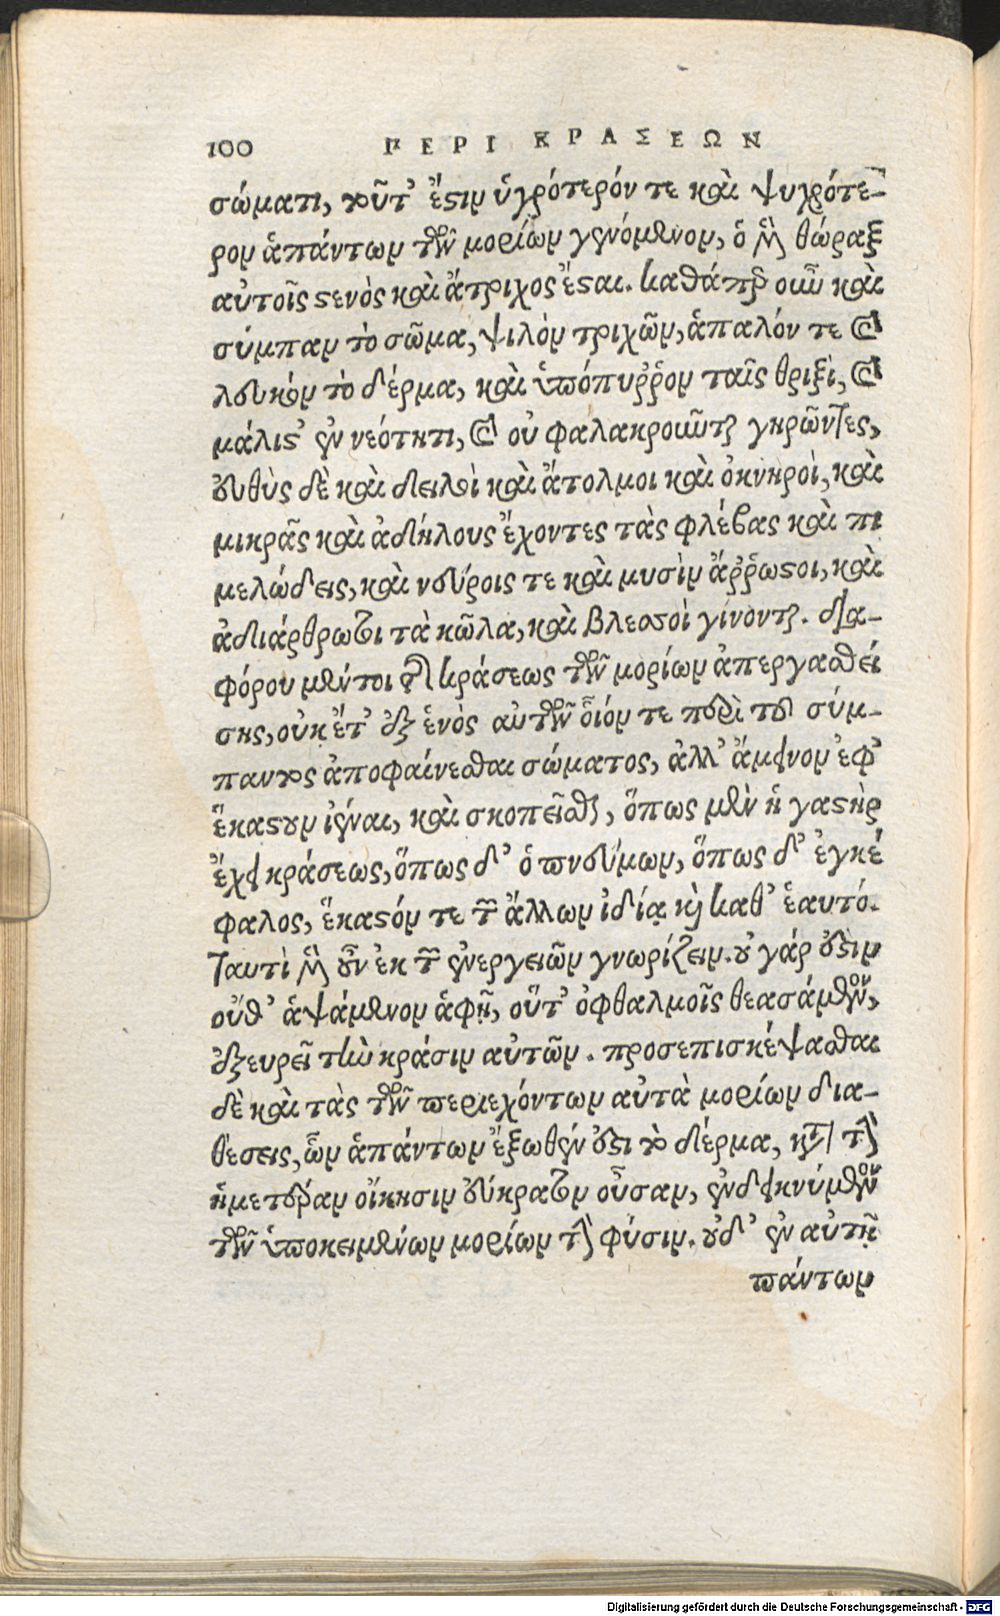 100 ΠΕΡΙ ΚΡΑΣΕΩΝ
σώματι, τοῦτ' ἔστιν ὑγρότερόν τε καὶ ψυχρότε-
ρον ἁπάντων τῶν μορίων γινόμενον, ὁ μὲν θώραξ
αὐτοῖς στενὸς καὶ ἄτριχος ἔσται. καθάπερ οὖν καὶ
σύμπαν τὸ σῶμα, ψιλὸν τριχῶν, ἁπαλόν τε καὶ
λευκὸν τὸ δέρμα, καὶ ὑπόπυῤῥον ταῖς θριξὶ, καὶ
μάλιστ' ἐν νεότητι, καὶ οὐ φαλακροῦνται γηρῶντες,
εὐθὺς δὲ καὶ δειλοὶ καὶ ἄτολμοι καὶ ὀκνηροὶ, καὶ
μικρᾶς καὶ ἀδήλους ἔχοντες τὰς φλέβας καὶ πι
μελώδεις, καὶ νεύροις τε καὶ μυσὶν ἄῤῥωστοι, καὶ
ἀδιάρθρωτοι τὰ κῶλα, καὶ βλεσοὶ γίνονται. δια-
φόρου μέντοι τῆς κράσεως τῶν μορίων ἀπεργασθεί
σης, οὐκ ἔτ' ἐξ ἑνὸς αὐτῶν οἷόν τε περὶ τοῦ σύμ-
παντος ἀποφαίνεσθαι σώματος, ἀλλ' ἄμεινον ἐφ'
ἕκαστον ἰέναι, καὶ σκοπεῖσθαι, ὅπως μὲν ἡ γαστὴρ
ἔχει κράσεως, ὅπως δ' ὁ πνεύμων, ὅπως δ' ἐγκέ
φαλος, ἕκαστόν τε τῶν ἄλλων ἰδίᾳ καὶ καθ' ἑαυτό.
ταυτὶ μὲν οὖν ἐκ τῶν ἐνεργειῶν γνωρίζειν. οὐ γάρ ἐστιν
οὔθ' ἁψάμενον ἁφῇ, οὔτ' ὀφθαλμοῖς θεασάμενον,
ἐξευρεῖν τὴν κράσιν αὐτῶν. προσεπισκέψασθαι
δὲ καὶ τὰς τῶν περιεχόντων αὐτὰ μορίων δια-
θέσεις, ὧν ἁπάντων ἔξωθέν ἐστι τὸ δέρμα, κατὰ τὴν
ἡμετέραν οἴκησιν εὔκρατον οὖσαν, ἐνδεικνύμενον
τῶν ὑποκειμένων μορίων τὴν φύσιν. οὐδ' ἐν αὐτῇ
πάντων
Digitalisierung gefördert durch die Deutsche Forschungsgemeinschaft - DFG